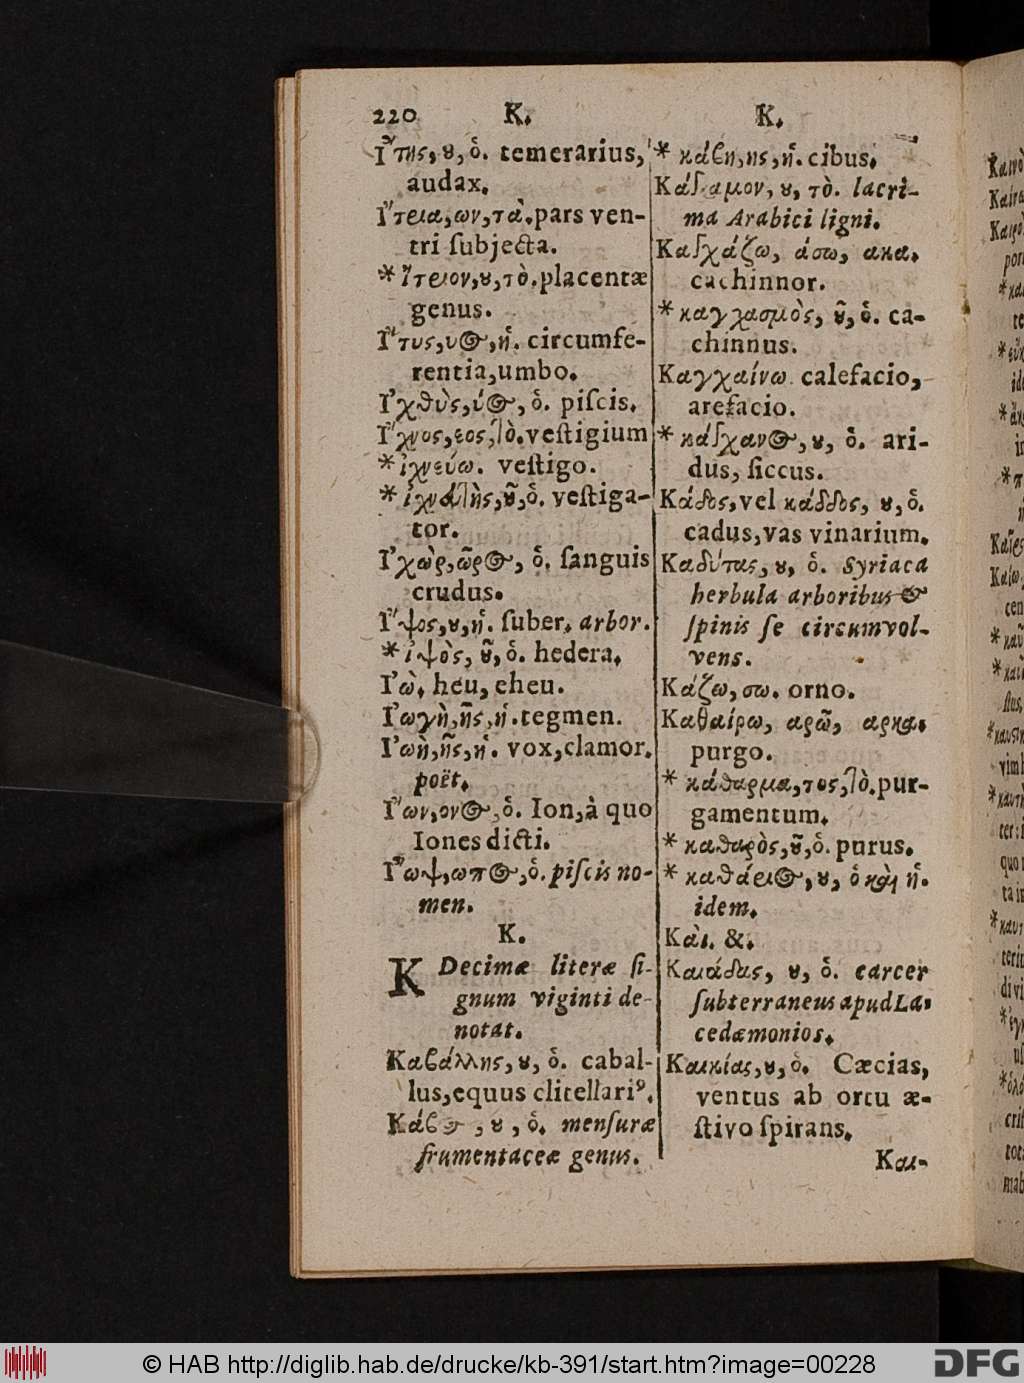 220 K. K.
Ἴτης, ȣ, ὁ. temerarius,
audax.
Ἴτεια, ων, τὰ. pars ven-
tri ſubjecta.
* ἴτειον, ȣ, τὸ. placentæ
genus.
Ἴτυς, υ⊙, ἡ. circumfe-
rentia, umbo.
Ἰχθὺς, ύ⊙, ὁ. piſcis.
Ἴχνος, εος, τὸ. veſtigium
* ἰχνεύω. veſtigo.
* ἰχνευτὴς, ȣ͂, ὁ. veſtiga-
tor.
Ἰχὼρ, ῶρ⊙, ὁ. ſanguis
crudus.
Ἴψος, ȣ, ἡ. ſuber, arbor.
* ἰψὸς, ȣ͂, ὁ. hedera.
Ἰὼ. heu, eheu.
Ἰωγὴ, ῆς, ἡ. tegmen.
Ἰωὴ, ῆς, ἡ. vox, clamor.
poët.
Ἴων, ον⊙, ὁ. Ion, à quo
Iones dicti.
Ἴωψ, ωπ⊙, ὁ. piſcis no-
men.
K.
K Decimæ literæ ſi-
gnum viginti de-
notat.
Καβάλλης, ȣ, ὁ. cabal-
lus, equus clitellariꝰ.
Κάβ⊙, ȣ, ὁ. menſuræ
frumentaceæ genus.
* κάβη, ης, ἡ. cibus.
Κάγκαμον, ȣ, τὸ. lacri-
ma Arabici ligni.
Καγχάζω, άσω, ακα.
cachinnor.
* καγχασμὸς, ȣ͂, ὁ. ca-
chinnus.
Καγχαίνω. calefacio,
arefacio.
* κάγχαν⊙, ȣ, ὁ. ari-
dus, ſiccus.
Κάδος, vel κάδδος, ȣ, ὁ.
cadus, vas vinarium.
Καδύτας, ȣ, ὁ. Syriaca
herbula arboribus &
ſpinis ſe circumvol-
vens.
Κάζω, σω. orno.
Καθαίρω, αρῶ, αρκα.
purgo.
* κάθαρμα, τος, τὸ. pur-
gamentum.
* καθαρὸς, ȣ͂, ὁ. purus.
* καθάρει⊙, ȣ, ὁ καὶ ἡ.
idem.
Καὶ. &.
Καιάδας, ȣ, ὁ. carcer
ſubterraneus apud La-
cedæmonios.
Καικίας, ȣ, ὁ. Cæcias,
ventus ab ortu æ-
ſtivo ſpirans.
Και-
© HAB http://diglib.hab.de/drucke/kb-391/start.htm?image=00228
DFG